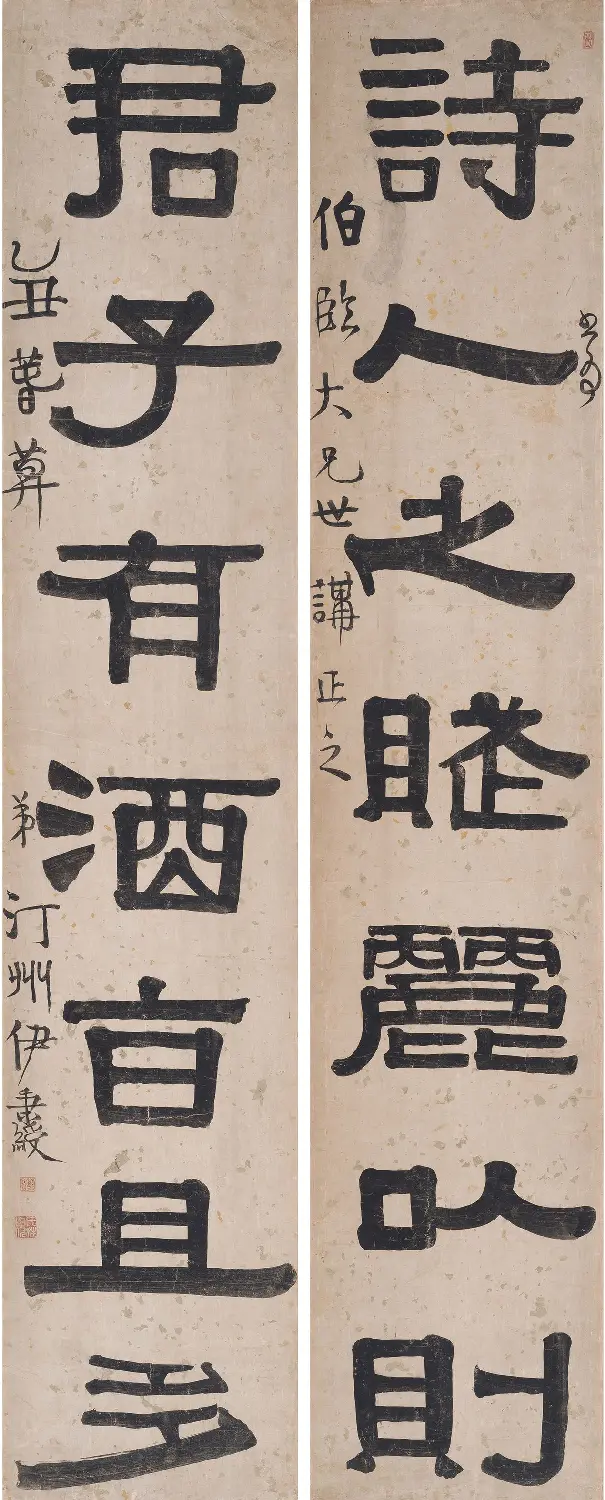 詩人之賦麗以則
書為
伯臨大兄世講正之
君子有酒旨且多
乙丑萅莫
弟汀州伊秉綬